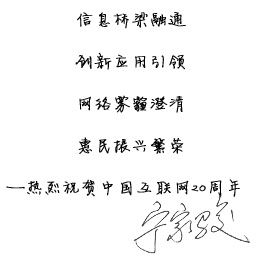 信息桥梁融通
创新应用引领
网络雾霾澄清
惠民振兴繁荣
—热烈祝贺中国互联网20周年
宁家骏